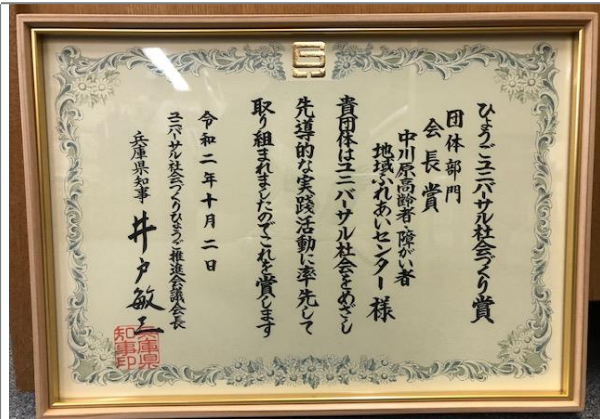 ひょうごユニバーサル社会づくり賞
団体部門
会長賞
中川原高齢者・障がい者
地域ふれあいセンター 様
貴団体はユニバーサル社会をめざし
先導的な実践活動に率先して
取り組まれましたのでこれを賞します
令和二年十月二日
ユニバーサル社会づくりひょうご推進会議会長
兵庫県知事 井戸敏三
兵庫県
知事印